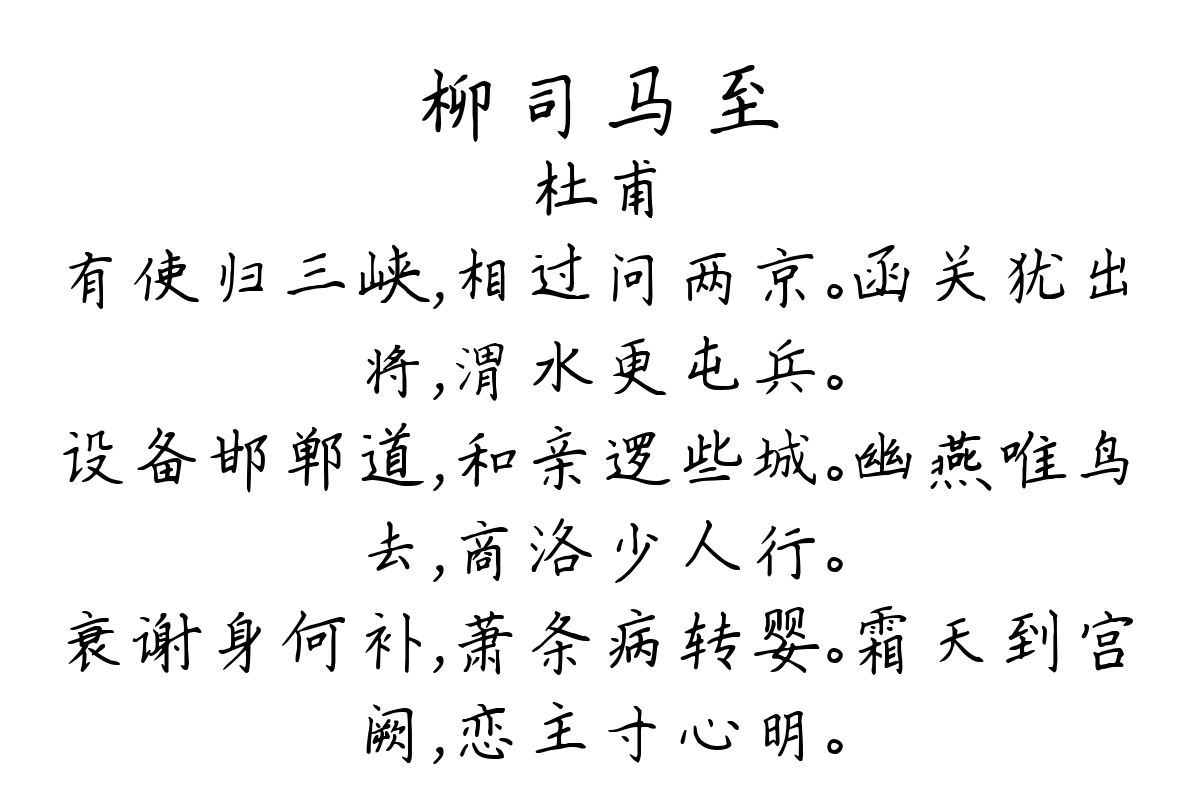 柳司马至
杜甫
有使归三峡,相过问两京。函关犹出
将,渭水更屯兵。
设备邯郸道,和亲逻些城。幽燕唯鸟
去,商洛少人行。
衰谢身何补,萧条病转婴。霜天到宫
阙,恋主寸心明。